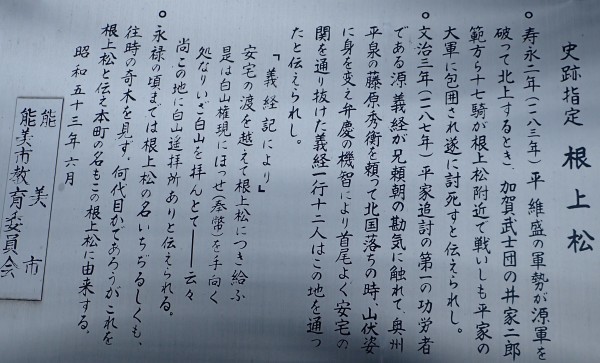 史跡指定 根上松
○ 寿永二年(一一八三年)平 維盛の軍勢が源軍を
破って北上するとき、加賀武士団の井家二郎
範方ら十七騎が根上松附近で戦いしも平家の
大軍に包囲され遂に討死すと伝えられし。
○ 文治三年(一一八七年)平家追討の第一の功労者
である源 義経が兄頼朝の勘気に触れて、奥州
平泉の藤原秀衡を頼って北国落ちの時、山伏姿
に身を変え弁慶の機智により首尾よく安宅の
関を通り抜けた義経一行十二人はこの地を通っ
たと伝えられし。
『義経記により』
安宅の渡を越えて根上松につき給ふ
是は白山権現にほっせ(奉幣)を手向く
処なりいざ白山を拝んとて――云々
尚この地に白山遥拝所ありと伝えられる。
○ 永禄の頃までは根上松の名いちぢるしくも、
往時の奇木を見ず、何代目かであろうがこれを
根上松と伝え本町の名もこの根上松に由来する。
昭和五十三年六月
能美市
能美市教育委員会